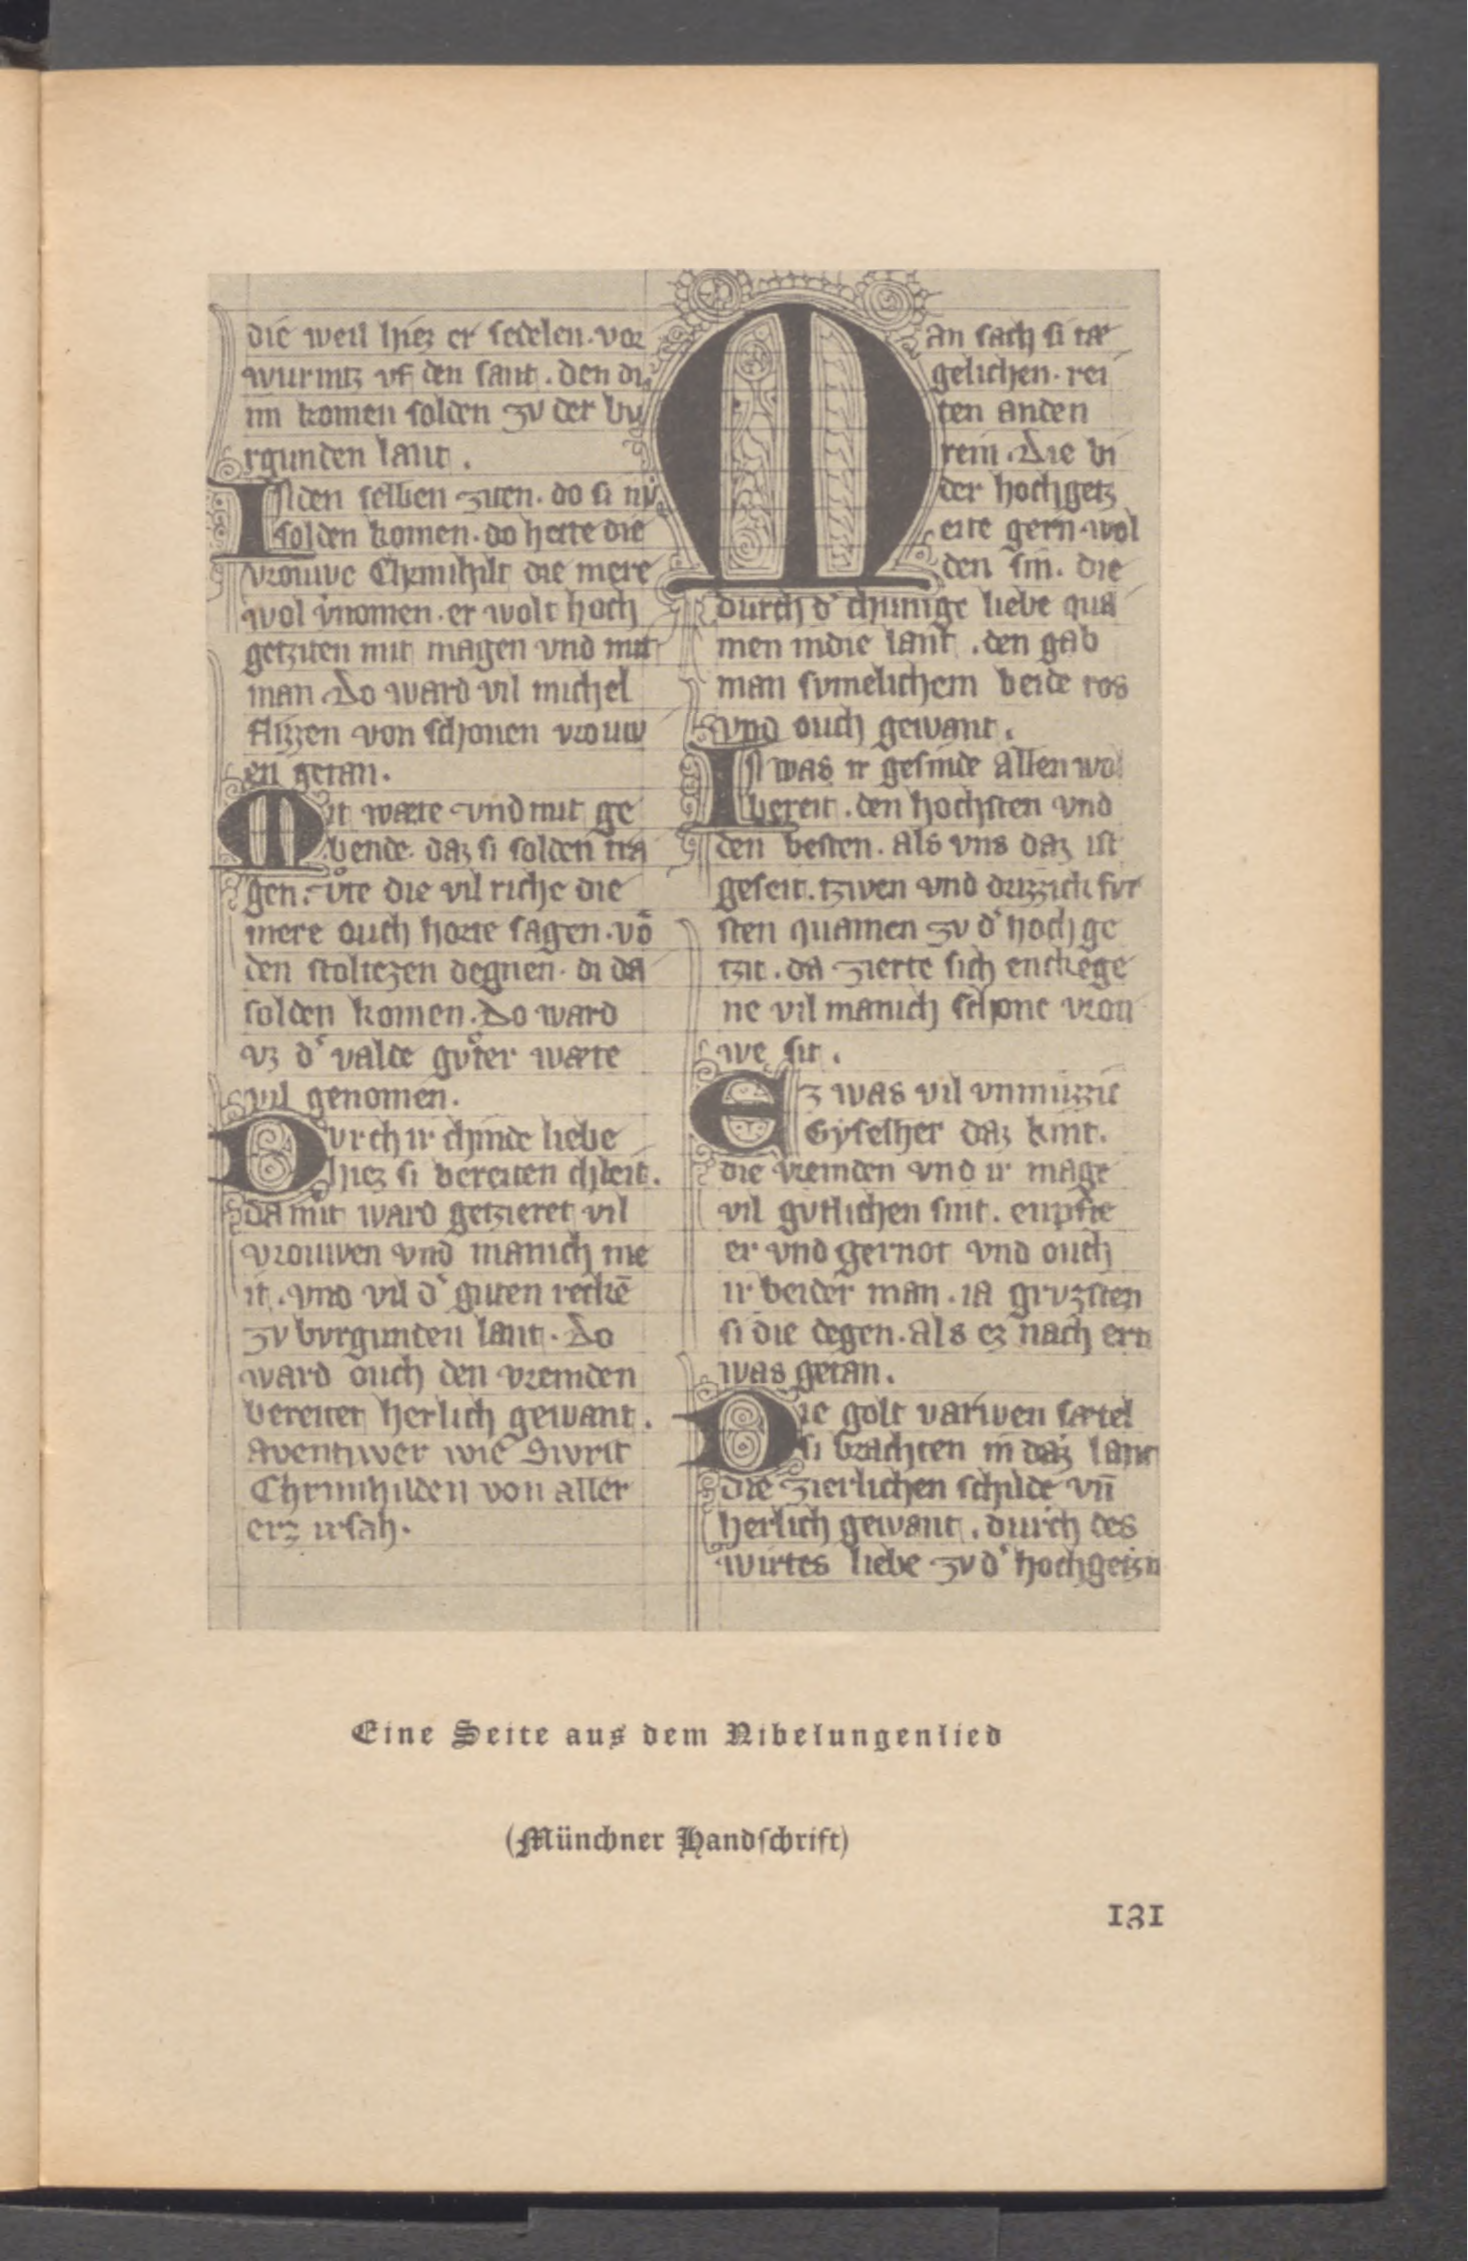 die weil hiez er sedelen · vor
wurmtz vf den sant . den di
im komen solden zv der bv
rgunden lant .
IN den selben ziten · do si nv
solden komen · do hette die
vrouwe Chrimhilt die mere
wol v̓nomen · er wolt hoch
getziten mit magen vnd mit
man · Do ward vil michel
flizzen von schonen vrouw
en getan .
Mit wæte vnd mit ge
bende · daz si solden tra
gen · vͦte die vil riche die
mere ouch horte sagen · vō
den stoltezen degnen · di da
solden komen · Do ward
vz d' valde gvͦter wæte
vil genomen .
Dvrch ir chinde liebe
hiez si bereiten chleit .
da mit ward getzieret vil
vrouwen vnd manich me
it . vnd vil d' guten reckē
zv bvrgunden lant · Do
ward ouch den vremden
bereitet herlich gewant .
Aventiwer wie Sivrit
Chrimhilden von aller
erz irsah ·
Man sach si tæ
gelichen · rei
ten an den
rein . Die bi
der hochgetz
eite gern wol
den sin . die
durch d' chunige liebe qua
men in die lant . den gab
man svmelichem beide ros
vnd ouch gewant .
IN was ir gesinde allen wol
bereit . den hochsten vnd
den besten . als vns daz ist
geseit . tzwen vnd drizzich fvr
sten quamen zv d' hochge
tzit . da zierte sich enckege
ne vil manich schone vrou
we sit .
Ez was vil vnmüzzic
Gyselher daz kint .
die vremden vnd ir mage
vil gvtlichen sint . enpfie
er vnd gernot vnd ouch
ir beider man . ia grvzsten
si die degen . als ez nach ern
was getan .
Die golt varwen sætel
si brachten in daz lant
die zierlichen schilde vn̄
herlich gewant . durch des
wirtes liebe zv d' hochgetzit
Eine Seite aus dem Nibelungenlied
(Münchner Handschrift)
131